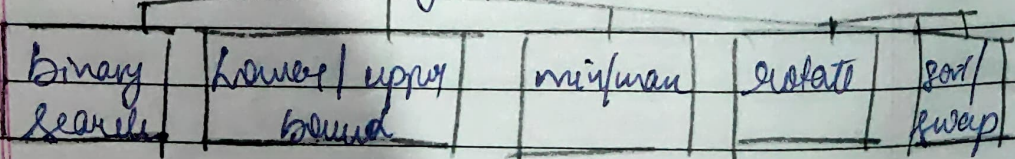 binary
search
Lower/upper
bound
min/max
rotate
sort/
swap